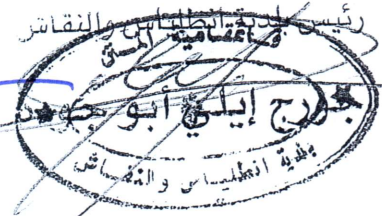 رئيس بلدية انطلياس والنقاش
قائمقامية المتن
جورج إيلي أبو جوده
بلدية انطلياس والنقاش